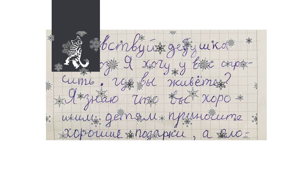 вствуй дедушка
оз Я хочу у вас спро-
сить, где вы живёте?
Я знаю что вы хоро
шим детям приносите
хорошие подарки, а пло-